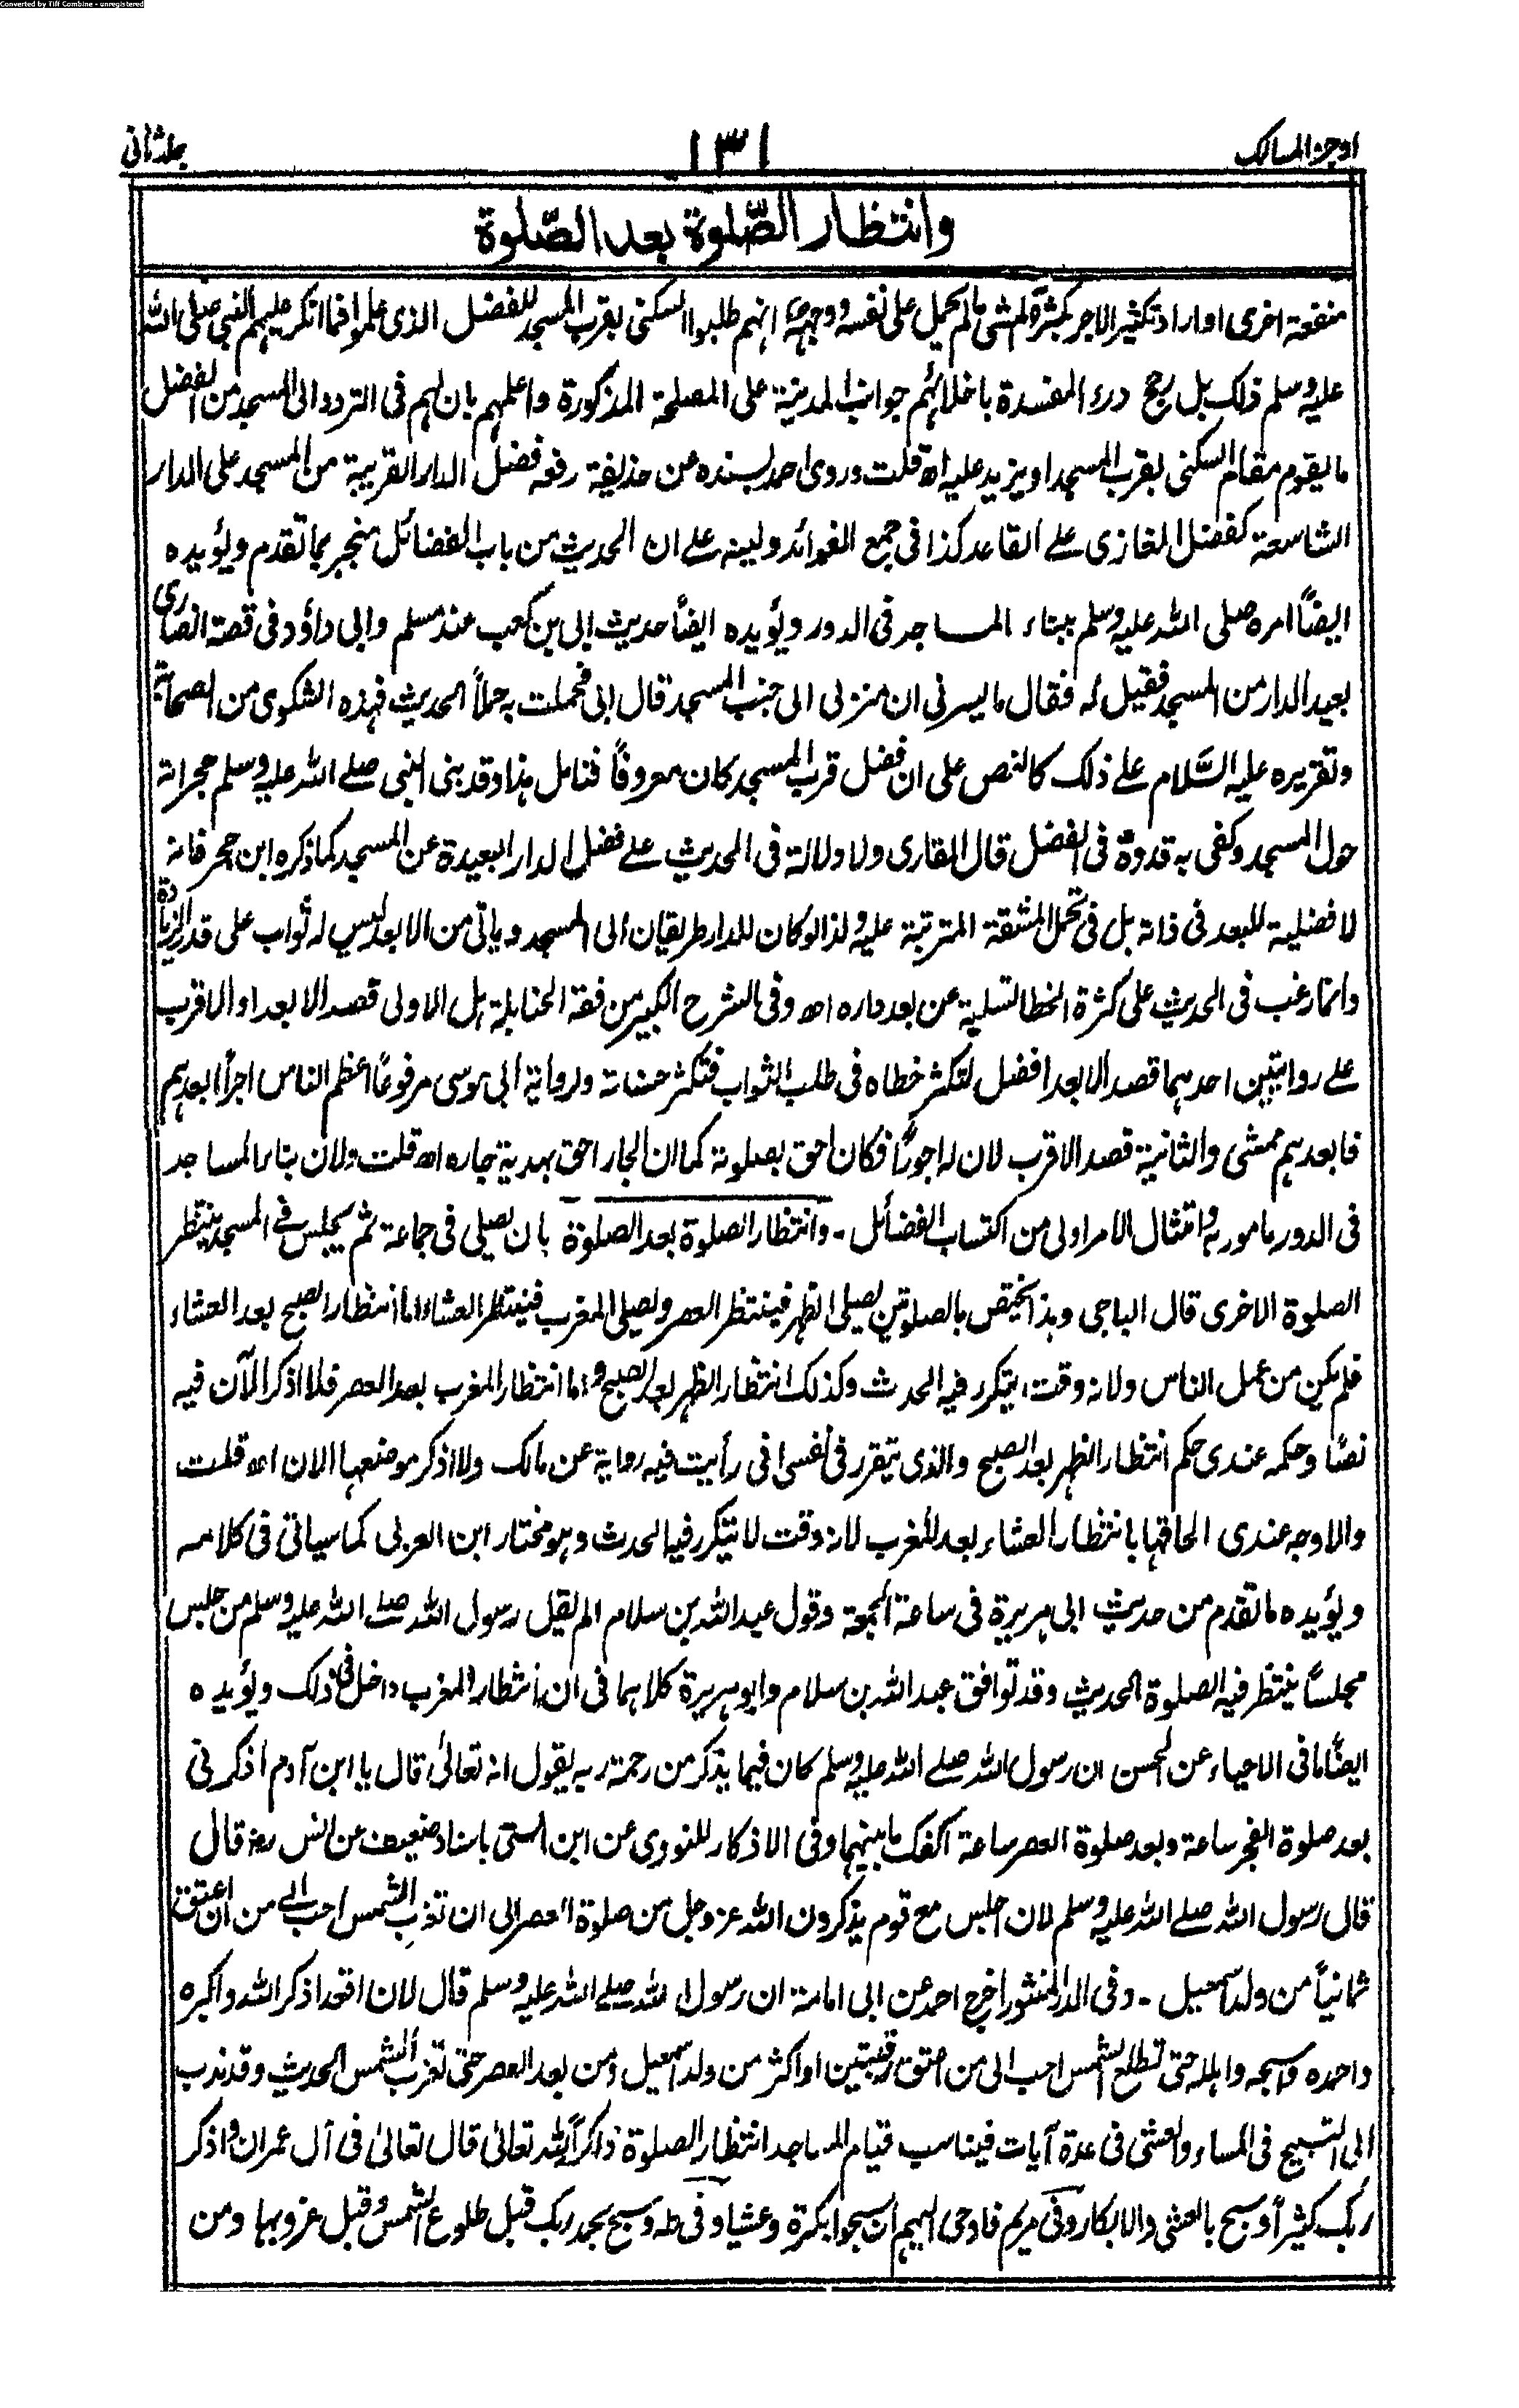 Converted by Tiff Combine - unregistered
اوجز المسالك
١٣١
جلد ثانی
وانتظار الصّلوة بعد الصّلوة
منفعة اخرى او اراد تكثير الاجر بكثرة المشى مالم يحمل على نفسه ووجهه انهم طلبوا السكنى بقرب المسجد للفضل الذى علموا فما انكر عليهم النبى صلى الله
عليه وسلم ذلك بل رجح درء المفسدة باخلائهم جوانب المدينة على المصلحة المذكورة واعلمهم بان لهم فى التردد الى المسجد من الفضل
ما يقوم مقام السكنى بقرب المسجد او يزيد عليه اھ قلت وروى احمد بسنده عن حذيفة رفعه فضل الدار القريبة من المسجد على الدار
الشاسعة كفضل الغازى على القاعد كذا فى جمع الفوائد ولينه على ان الحديث من باب الفضائل منجبر بما تقدم ويؤيده
ايضاً امره صلى الله عليه وسلم ببناء المساجد فى الدور ويؤيده ايضاً حديث ابى بن كعب عند مسلم وابى داؤد فى قصة انصارى
بعيد الدار من المسجد فقيل له فقال ما يسرنى ان منزلى الى جنب المسجد قال ابى فحملت به حملاً الحديث فهذه الشكوى من الصحابة
وتقريره عليه السَّلام على ذلك كالنص على ان فضل قرب المسجد كان معروفاً فتامل هذا وقد بنى النبى صلے الله عليه وسلم حجراته
حول المسجد وكفى به قدوةً فى الفضل قال القارى ولا دلالة فى الحديث على فضل الدار البعيدة عن المسجد كما ذكره ابن حجر فانه
لا فضلية للبعد فى ذاته بل فى تحمل المشقة المترتبة عليه ولذا لو كان للدار طريقان الى المسجد وياتى من الابعد ليس له ثواب على قدر الزيادة
وانما رغب فى الحديث على كثرة الخطا لتسلية عن بعد داره اھ وفى الشرح الكبير من فقة الحنابلة هل الاولى قصد الابعد او الاقرب
على روايتين احدهما قصد الابعد افضل لتكثر خطاه فى طلب الثواب فتكثر حسناته ولرواية ابى موسى مرفوعاً اعظم الناس اجراً ابعدهم
فابعدهم ممشى والثانية قصد الاقرب لان له اجورًا فكان احق بصلوته كما ان الجار احق بهدية جاره اھ قلت ولان بناء المساجد
فى الدور مامور به وامتثال الامر اولى من اكتساب الفضائل - وانتظار الصلوة بعد الصلوة بان يصلى فى جماعة ثم يجلس فى المسجد ينتظر
الصلوة الاخرى قال الباجى وهذا يختص بالصلوتين يصلى الظهر فينتظر العصر ويصلى المغرب فينتظر العشاء اما انتظار الصبح بعد العشاء
فلم يكن من عمل الناس ولانه وقت يتكرر فيه الحدث وكذلك انتظار الظهر بعد الصبح واما انتظار المغرب بعد العصر فلا اذكر الآن فيه
نصًا وحكمه عندى حكم انتظار الظهر بعد الصبح والذى يتقرر فى نفسى انى رأيت فيه رواية عن مالك ولا اذكر موضعها الان اھ قلت
والاوجه عندى الحاقها بانتظار العشاء بعد المغرب لانه وقت لا يتكرر فيه الحدث وهو مختار ابن العربى كما سياتى فى كلامه
ويؤيده ما تقدم من حديث ابى هريرة فى ساعة الجمعة وقول عبدالله بن سلام الم يقل رسول الله صلے الله عليه وسلم من جلس
مجلساً ينتظر فيه الصلوة الحديث وقد توافق عبدالله بن سلام وابوهريرة كلاهما فى ان انتظار المغرب داخل فى ذلك ويؤيده
ايضًا ما فى الاحياء عن الحسن ان رسول الله صلے الله عليه وسلم كان فيما يذكر من رحمة ربه يقول انه تعالىٰ قال يا ابن آدم اذكرنى
بعد صلوة الفجر ساعة وبعد صلوة العصر ساعة اكفك ما بينهما وفى الاذكار للنووى عن ابن السنى باسناد ضعيف عن انس رضـ قال
قال رسول الله صلے الله عليه وسلم لان اجلس مع قوم يذكرون الله عزوجل من صلوة العصر الى ان تغرب الشمس احب الى من ان اعتق
ثمانياً من ولد اسمعيل - وفى الدر المنثور اخرج احمد عن ابى امامة ان رسول الله صلے الله عليه وسلم قال لان اقعد اذكر الله واكبره
واحمده واسبحه واهلله حتى تطلع الشمس احب الى من اعتق رقبتين او اكثر من ولد اسمعيل ومن بعد العصر حتى تغرب الشمس الحديث وقد ندب
الى التسبيح فى المساء والعشى فى عدة آيات فيناسب قيام المساجد انتظار الصلوة ذاكراً لله تعالىٰ قال تعالىٰ فى آل عمران واذكر
ربك كثيراً وسبح بالعشى والابكار وفى مريم فاوحى اليهم ان سبحوا بكرة وعشيا وفى طه وسبح بحمد ربك قبل طلوع الشمس وقبل غروبها ومن